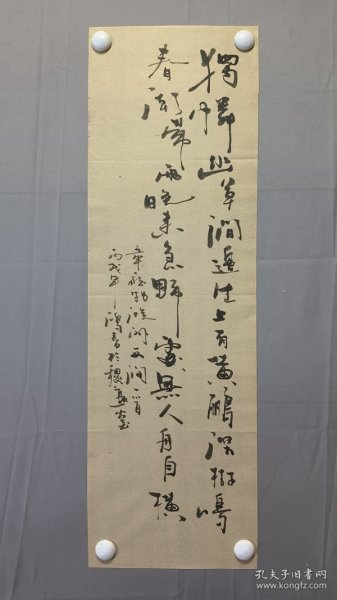 獨憐幽草澗邊生上有黃鸝深樹鳴
春潮帶雨晚來急野渡無人舟自橫
韋應物滁州西澗一首
丙戌年鴻書於
孔夫子旧书网